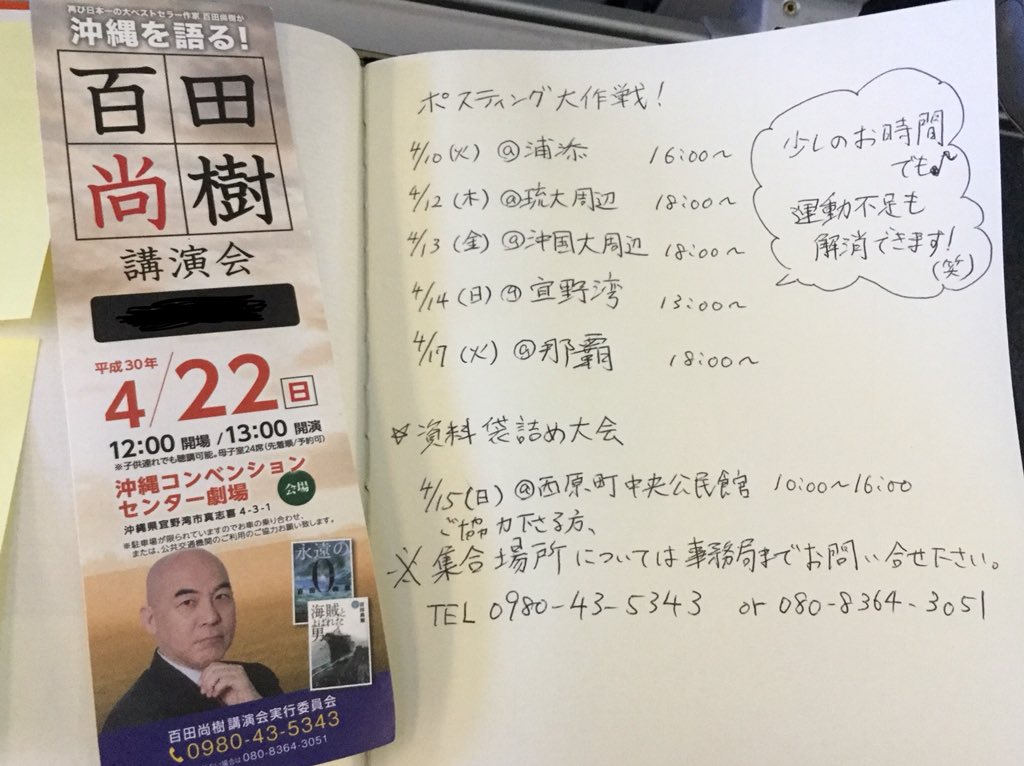 再び日本一の大ベストセラー作家 百田尚樹が
沖縄を語る!
百田
尚樹
講演会
平成30年
4/22日
12:00 開場/13:00 開演
※子供連れでも聴講可能。母子室24席(先着順/予約可)
沖縄コンベンション
センター劇場
会場
沖縄県宜野湾市真志喜 4-3-1
※駐車場が限られていますのでお車の乗り合わせ、
または、公共交通機関のご利用のご協力お願い致します。
永遠の
0
海賊と
よばれた
男
百田尚樹講演会実行委員会
0980-43-5343
場合は 080-8364-3051
ポスティング大作戦!
4/10(火) @浦添 16:00~
4/12(木) @琉大周辺 18:00~
4/13(金) @沖国大周辺 18:00~
4/14(日) @宜野湾 13:00~
4/17(火) @那覇 18:00~
少しのお時間
でも♪
運動不足も
解消できます!
(笑)
☆資料袋詰め大会
4/15(日) @西原町中央公民館 10:00~16:00
ご協力下さる方、
※集合場所については事務局までお問い合せ下さい。
TEL 0980-43-5343 or 080-8364-3051